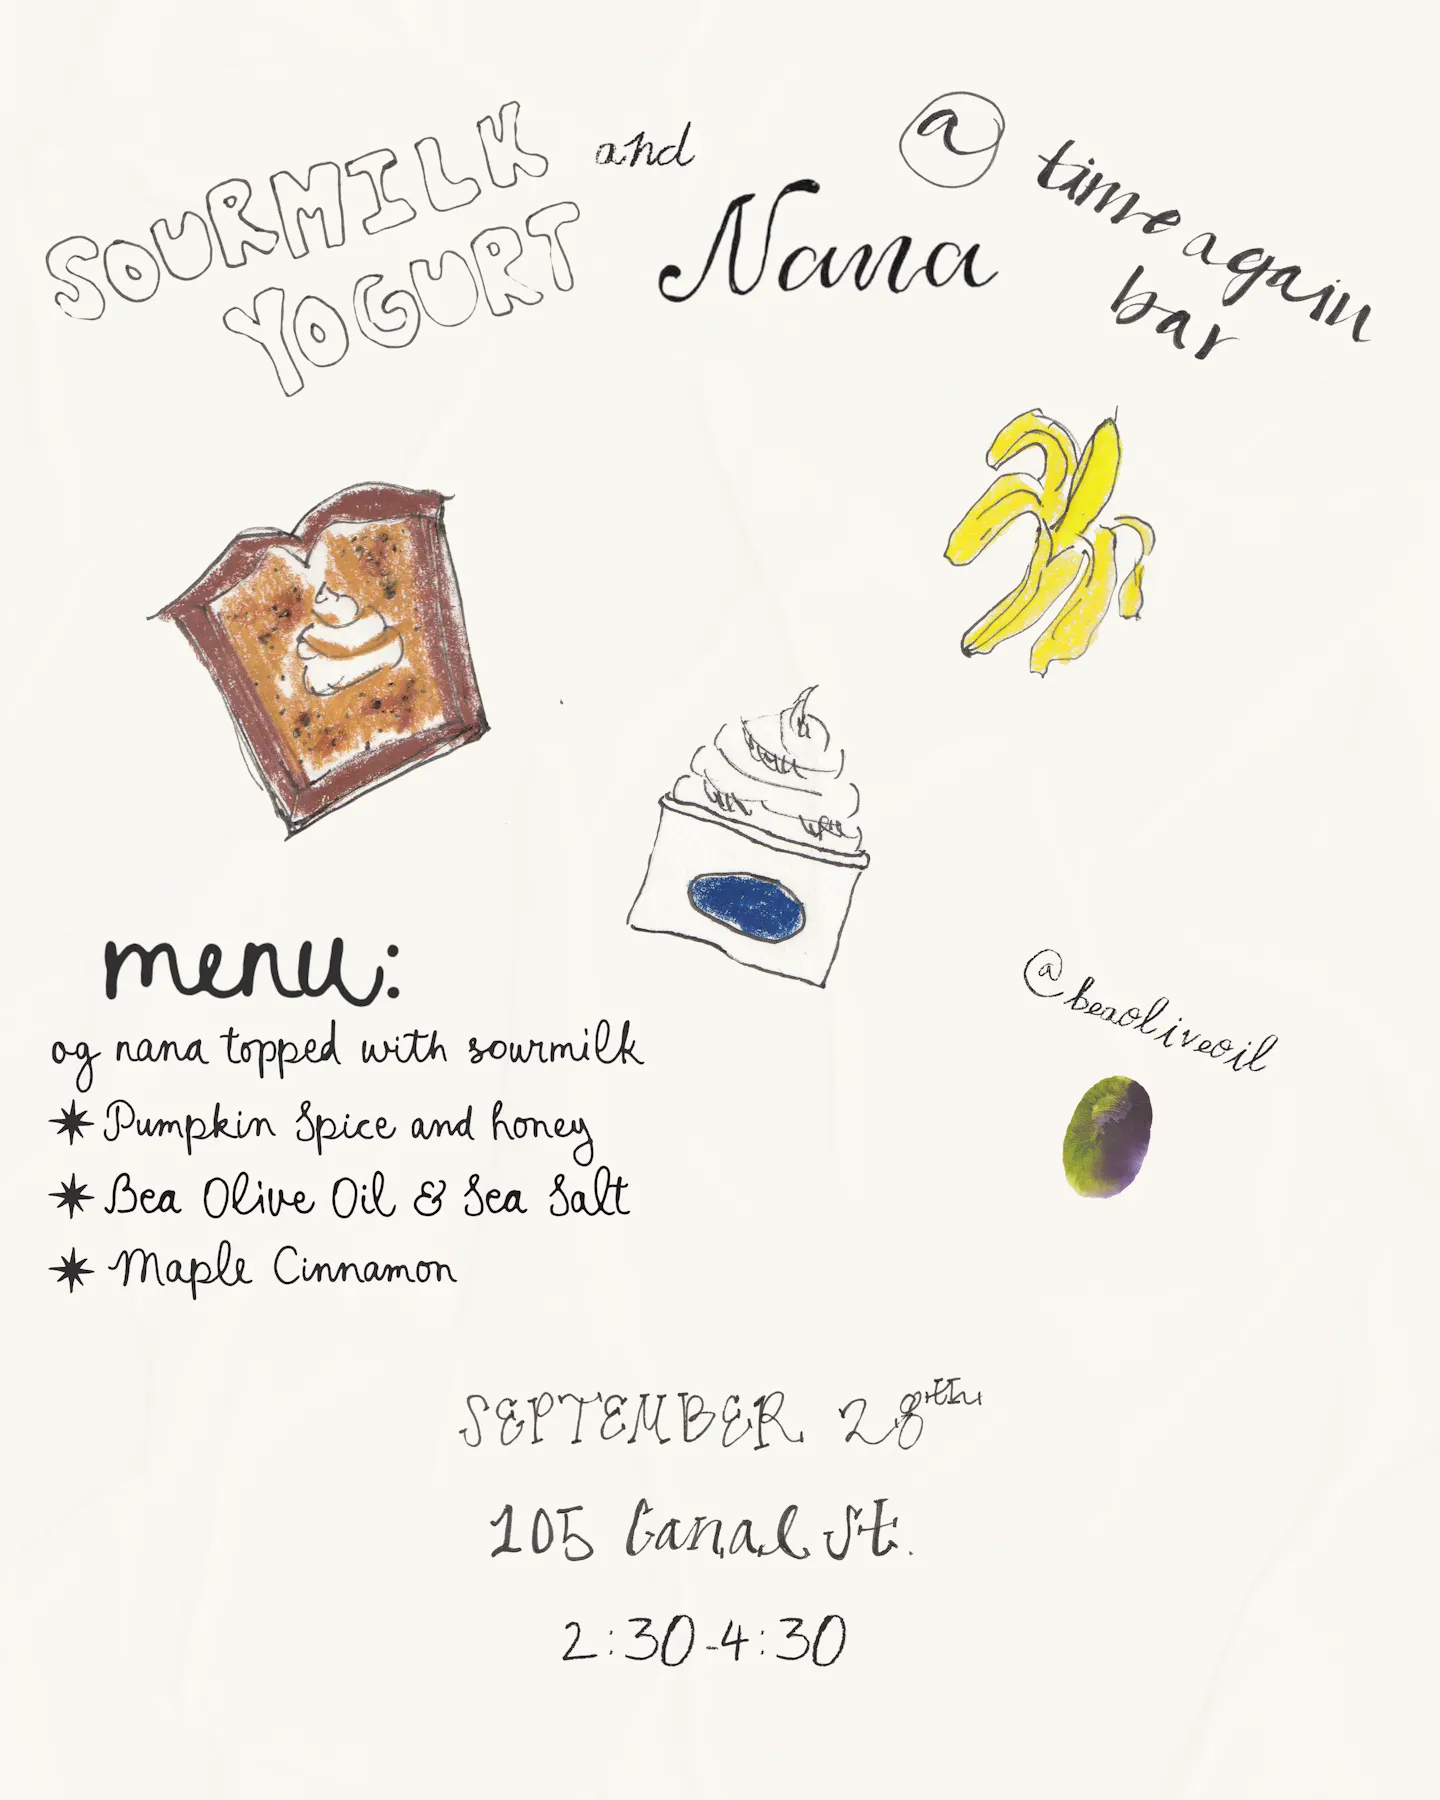 SOURMILK
YOGURT
and
Nana
@ time again
bar
@beaoliveoil
menu:
og nana topped with sourmilk
✷ Pumpkin Spice and honey
✷ Bea Olive Oil & Sea Salt
✷ Maple Cinnamon
SEPTEMBER 28th
105 Canal St.
2:30-4:30